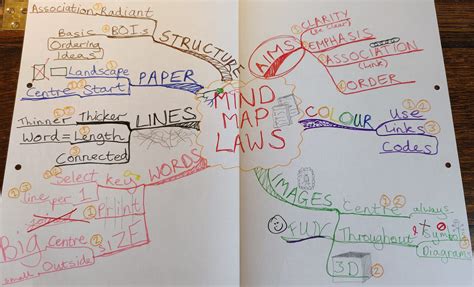 Association Radiant
Basic BOIs
Ordering
Ideas
STRUCTURE
Landscape
Centre Start
PAPER
Thinner Thicker
Word = Length
Connected
LINES
Select key
line per 1
Print
Big centre SIZE
small outside
WORDS
MIND
MAP
LAWS
AIMS
CLARITY
(Be clear)
EMPHASIS
ASSOCIATION
(Link)
ORDER
COLOUR
Use
Links
Codes
IMAGES
Centre always
FUN
Throughout
Symbols
Diagrams
3D